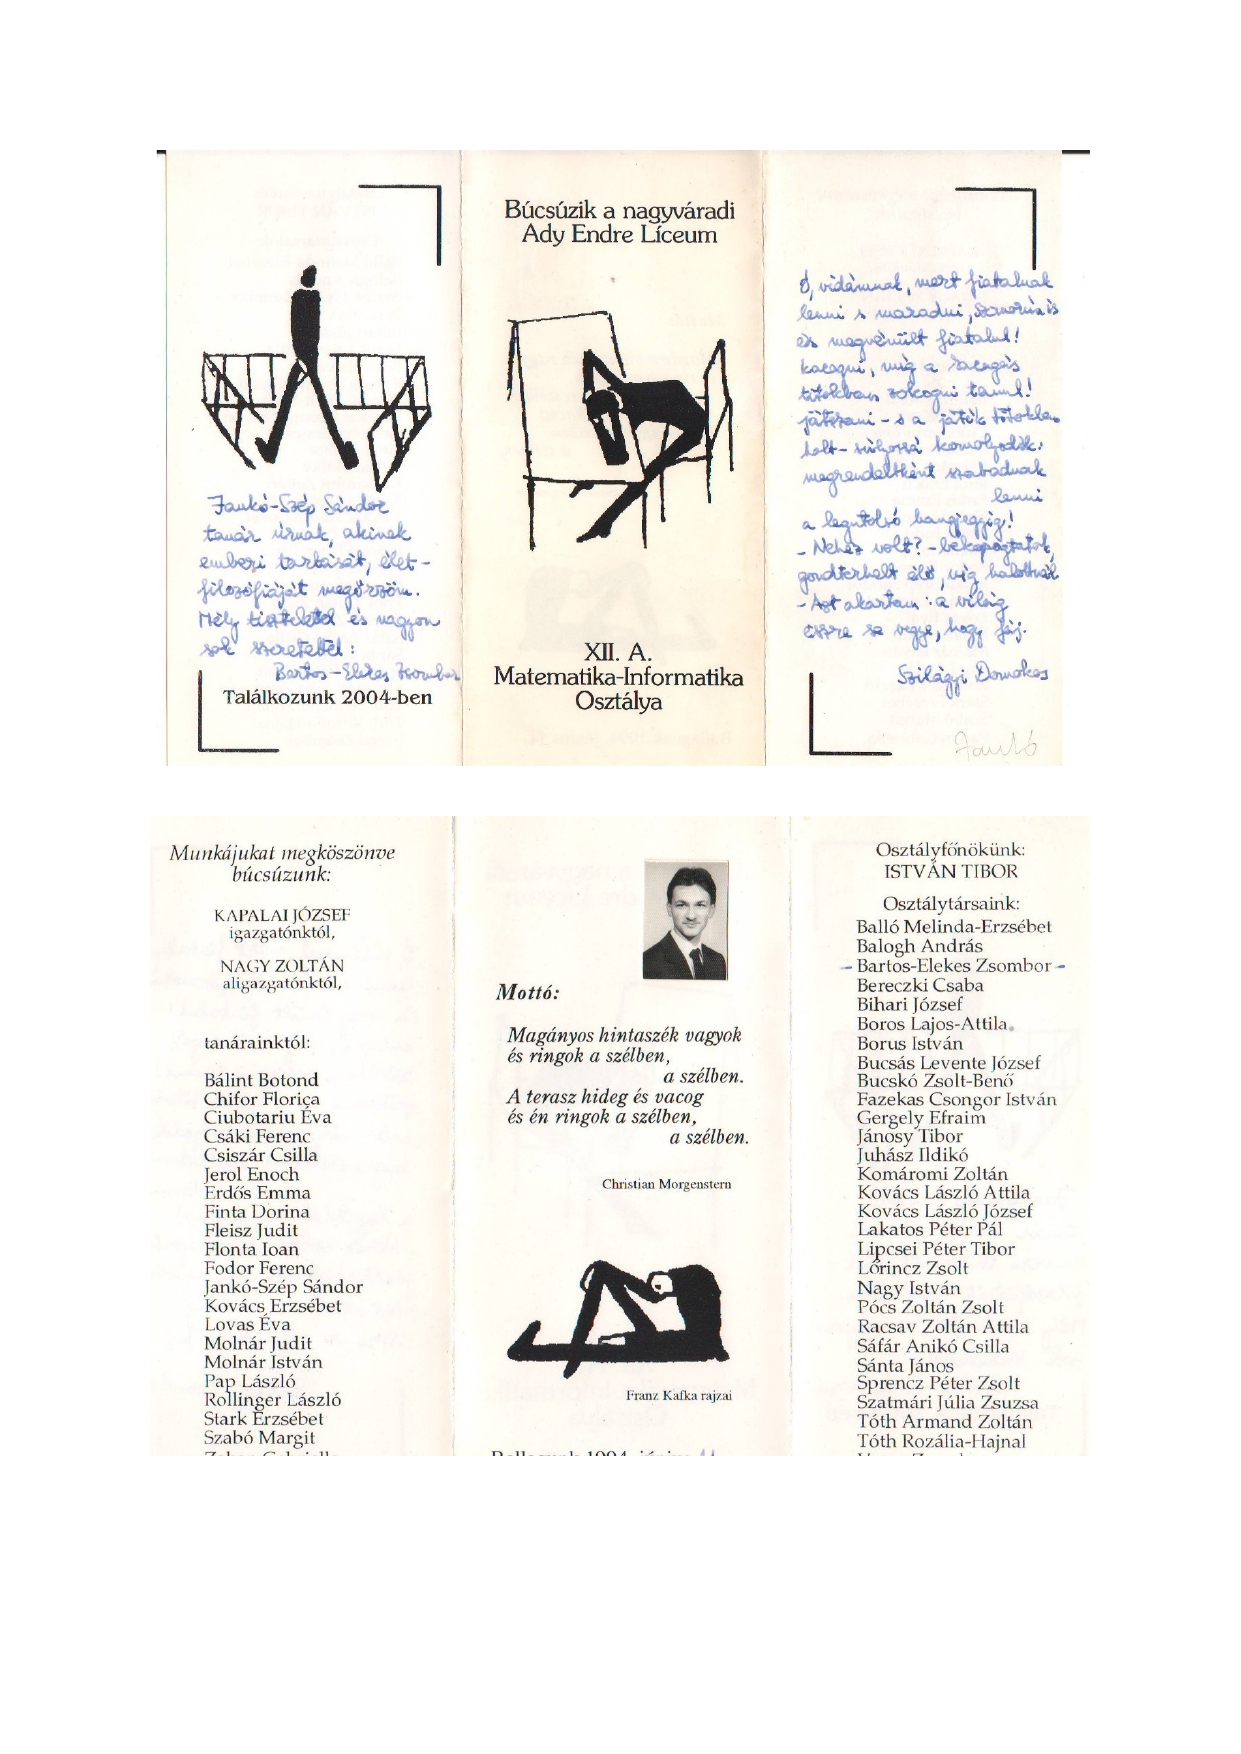 Búcsúzik a nagyváradi
Ady Endre Líceum
XII. A.
Matematika-Informatika
Osztálya
Jankó-Szép Sándor
tanár úrnak, akinek
emberi tartását, élet-
filozófiáját megőrzöm.
Mély tisztelettel és nagyon
sok szeretettel:
Bartos-Elekes Zsombor
Találkozunk 2004-ben
Ó, vidámnak, mert fiatalnak
lenni s maradni, szomorú is
és megvénült fiatalul!
kacagni, míg a kacagás
titokban zokogni tanul!
játszani - s a játék
halt - súlyossá komolyodik:
megrendeltként szabadnak
lenni
a legutolsó hangjegyig!
- Nehéz volt? - bekopogtatok,
gondterhelt élő, víg halottnál
- Azt akartam: a világ
észre se vegye, hogy fáj.
Szilágyi Domokos
Jankó
Munkájukat megköszönve
búcsúzunk:
KAPALAI JÓZSEF
igazgatónktól,
NAGY ZOLTÁN
aligazgatónktól,
tanárainktól:
Bálint Botond
Chifor Florica
Ciubotariu Éva
Csáki Ferenc
Csiszár Csilla
Jerol Enoch
Erdős Emma
Finta Dorina
Fleisz Judit
Flonta Ioan
Fodor Ferenc
Jankó-Szép Sándor
Kovács Erzsébet
Lovas Éva
Molnár Judit
Molnár István
Pap László
Rollinger László
Stark Erzsébet
Szabó Margit
Mottó:
Magányos hintaszék vagyok
és ringok a szélben,
a szélben.
A terasz hideg és vacog
és én ringok a szélben,
a szélben.
Christian Morgenstern
Franz Kafka rajzai
Ballagunk 1994. június 11
Osztályfőnökünk:
ISTVÁN TIBOR
Osztálytársaink:
Balló Melinda-Erzsébet
Balogh András
- Bartos-Elekes Zsombor -
Bereczki Csaba
Bihari József
Boros Lajos-Attila
Borus István
Bucsás Levente József
Bucskó Zsolt-Benő
Fazekas Csongor István
Gergely Efraim
Jánosy Tibor
Juhász Ildikó
Komáromi Zoltán
Kovács László Attila
Kovács László József
Lakatos Péter Pál
Lipcsei Péter Tibor
Lőrincz Zsolt
Nagy István
Pócs Zoltán Zsolt
Racsav Zoltán Attila
Sáfár Anikó Csilla
Sánta János
Sprencz Péter Zsolt
Szatmári Júlia Zsuzsa
Tóth Armand Zoltán
Tóth Rozália-Hajnal